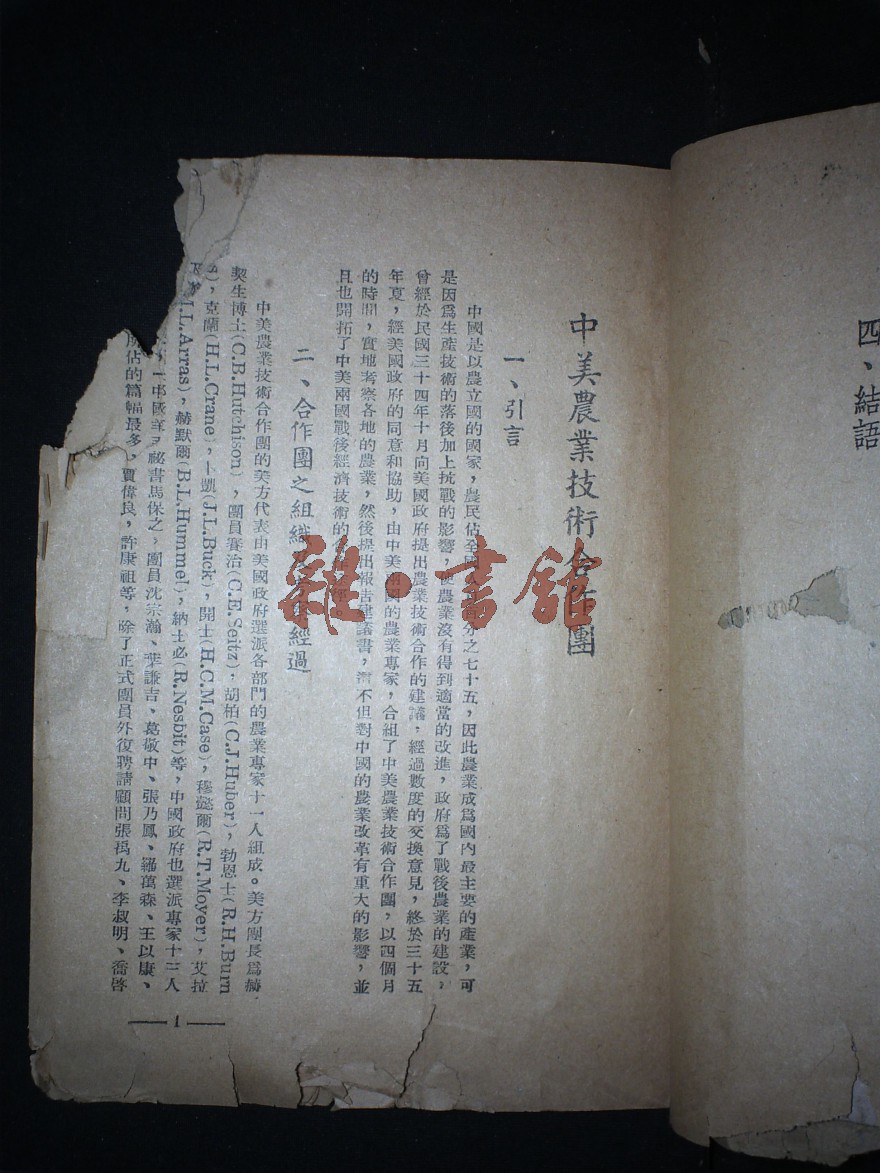 四、結語
中美農業技術合作團
一、引言
中國是以農立國的國家，農民佔全國分之七十五，因此農業成爲國內最主要的產業，可
是因爲生產技術的落後加上抗戰的影響，使農業沒有得到適當的改進，政府爲了戰後農業的建設，
曾經於民國三十四年十月向美國政府提出農業技術合作的建議，經過數度的交換意見，終於三十五
年夏，經美國政府的同意和協助，由中美兩國的農業專家，合組了中美農業技術合作團，以四個月
的時間，實地考察各地的農業，然後提出報告建議書，不但對中國的農業改革有重大的影響，並
且也開拓了中美兩國戰後經濟技術的合
二、合作團之組織經過
中美農業技術合作團的美方代表由美國政府選派各部門的農業專家十一人組成。美方團長爲赫
契生博士(C.B.Hutchison)，團員賽治(C.E.Seitz)，胡柏(C.J.Huber)，勃恩士(R.H.Burn
s)，克蘭(H.L.Crane)，卜凱(J.L.Buck)，開士(H.C.M.Case)，穆懿爾(R.T.Moyer)，艾拉
L.Arras)，赫默爾(B.L.Hummel)，納士必(R.Nesbit)等，中國政府也選派專家十三人
祕書馬保之，團員沈宗瀚、葉謙吉、葛敬中、張乃鳳、羅萬森、王以康、
所佔的篇幅最多，賈偉良，許康祖等，除了正式團員外復聘請顧問張禹九、李叔明、喬啓
1
雜·書館